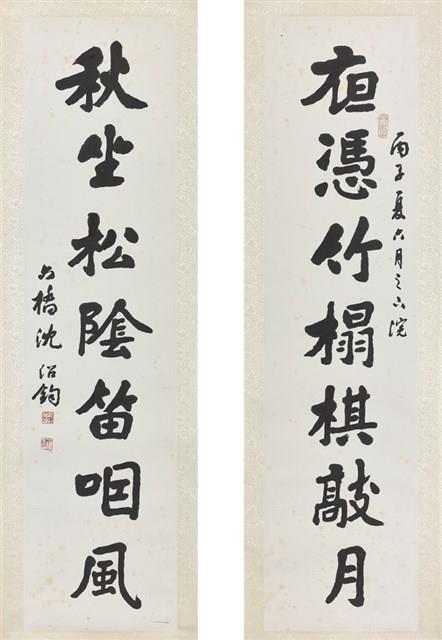 亱憑竹榻棋敲月
丙子夏六月之下浣
秋坐松陰笛咽風
六橋沈紹鈞